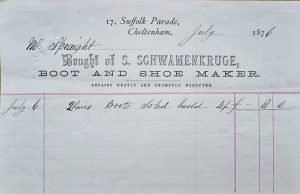 17, Suffolk Parade,
Cheltenham, July 1876
Mr Speight
Bought of S. SCHWAMENKRUGE,
BOOT AND SHOE MAKER.
REPAIRS NEATLY AND PROMPTLY EXECUTED.
July 6 2 Pairs Boots Soled heeld 8 0